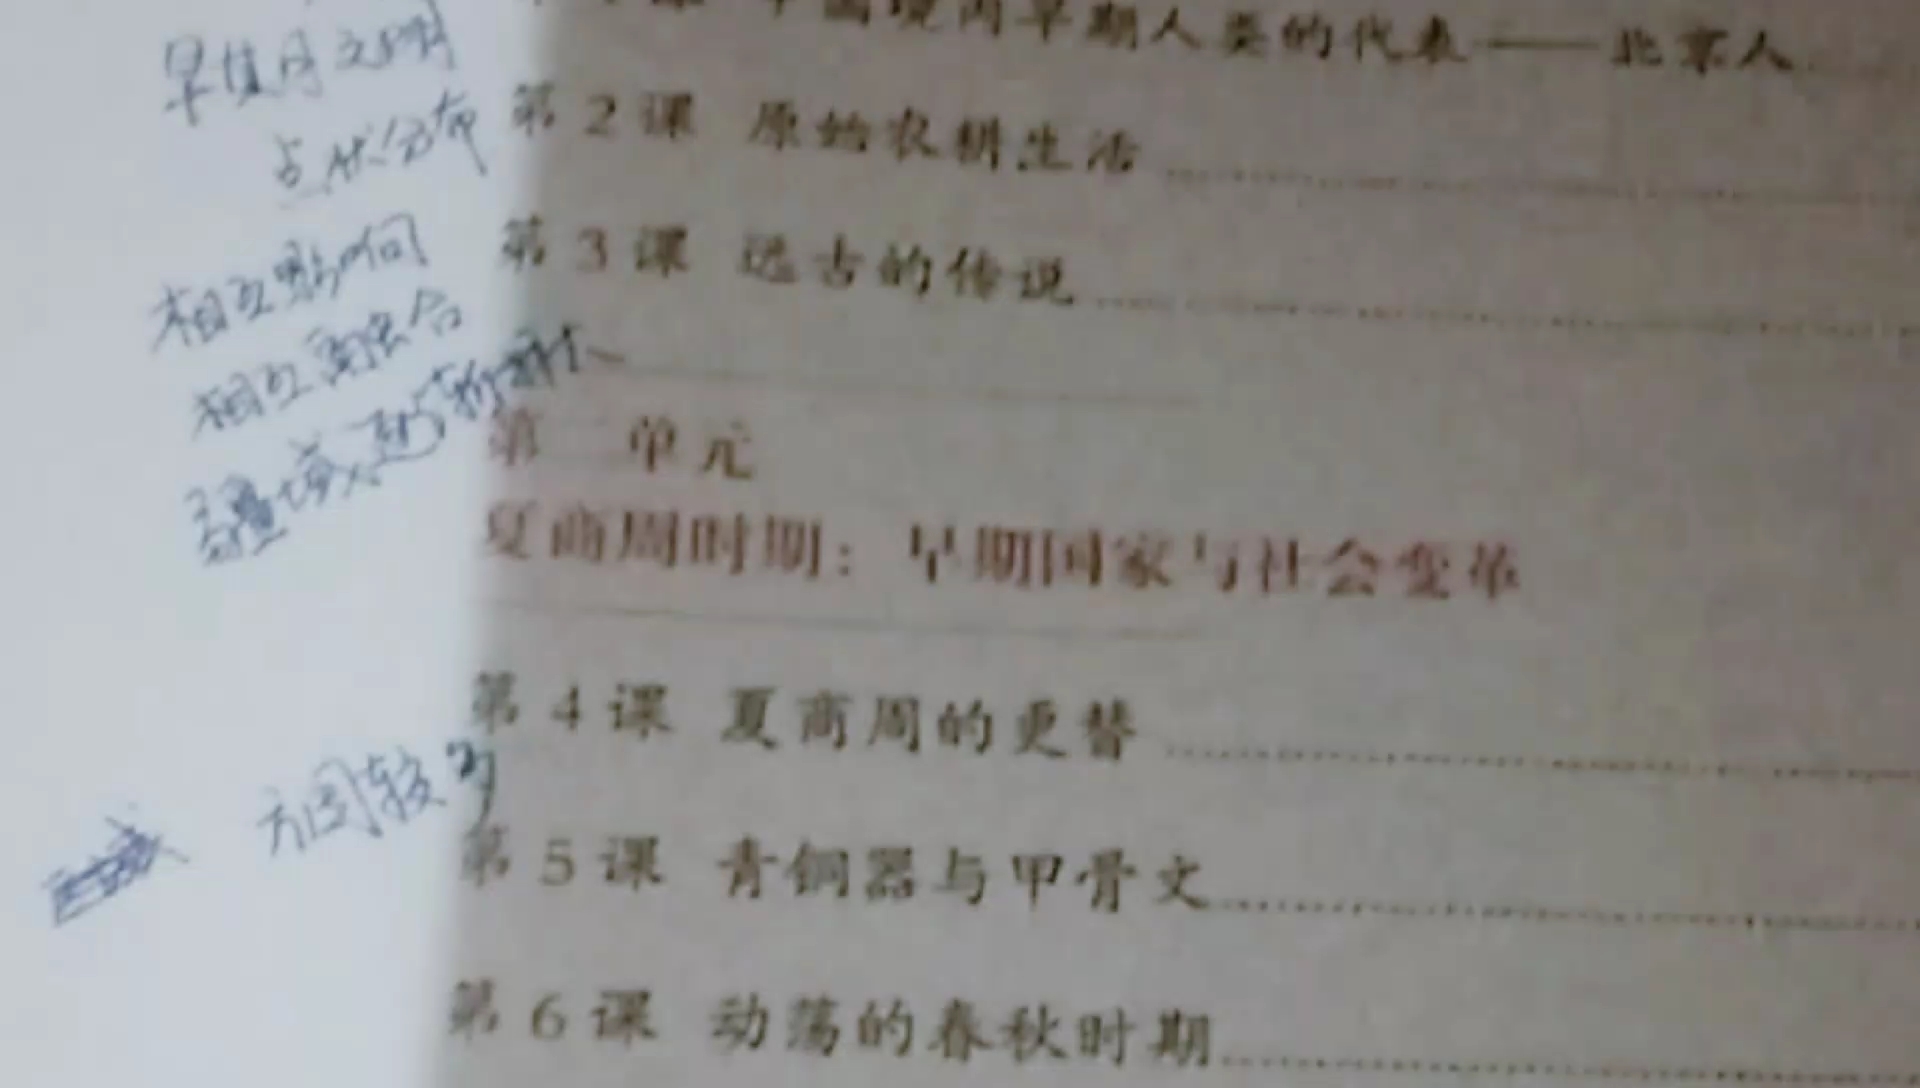 早期文明
点状分布
相互影响
相互融合
疆域逐渐扩大
方国较多
课 中国境内早期人类的代表——北京人
第2课 原始农耕生活
第3课 远古的传说
第二单元
夏商周时期：早期国家与社会变革
第4课 夏商周的更替
第5课 青铜器与甲骨文
第6课 动荡的春秋时期